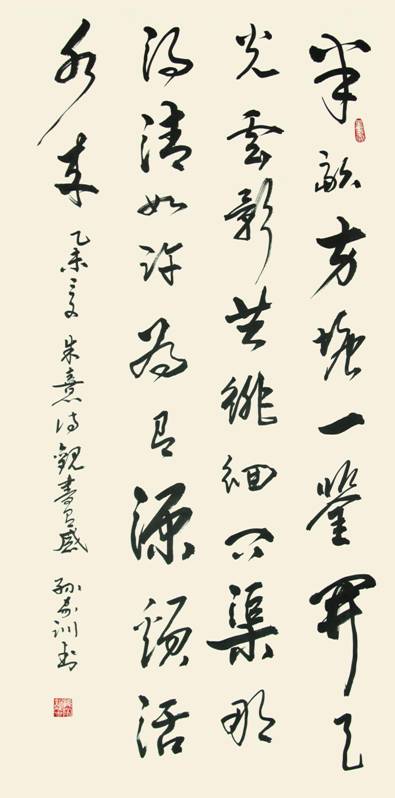 半畝方塘一鑒開天
光雲影共徘徊問渠那
得清如許為有源頭活
水來
乙未 朱熹詩觀書有感 孫 訓書